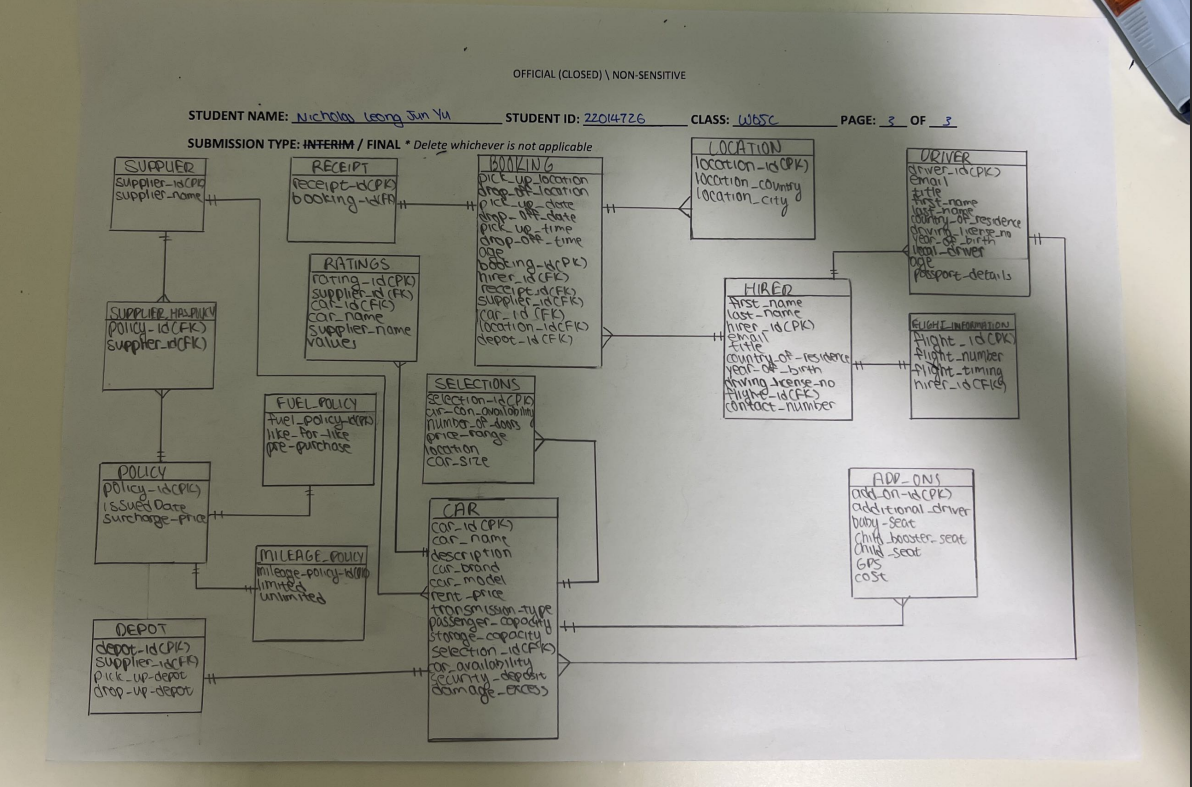 OFFICIAL (CLOSED) \ NON-SENSITIVE
STUDENT NAME: Nicholas Leong Jun Yu STUDENT ID: 22014726 CLASS: W05C PAGE: 3 OF 3
SUBMISSION TYPE: INTERIM / FINAL * Delete whichever is not applicable
SUPPLIER
supplier_id(PK)
supplier_name
RECEIPT
receipt-id(PK)
booking-id(FK)
BOOKING
pick_up_location
drop_off_location
pick_up_date
drop_off_date
pick_up_time
drop_off_time
age
booking_id(PK)
hirer_id(FK)
receipt_id(FK)
supplier_id(FK)
car_id(FK)
location_id(FK)
depot_id(FK)
LOCATION
location_id(PK)
location_country
location_city
DRIVER
driver_id(PK)
email
title
first_name
last_name
country_of_residence
driving_license_no
year_of_birth
legal_driver
age
passport_details
RATINGS
rating_id(PK)
supplier_id(FK)
car_id(FK)
car_name
supplier_name
values
HIRER
first_name
last_name
hirer_id(PK)
email
title
country_of_residence
year_of_birth
driving_license_no
flight_id(FK)
contact_number
FLIGHT_INFORMATION
flight_id(PK)
flight_number
flight_timing
hirer_id(FK)
SUPPLIER_HAS_POLICY
policy_id(FK)
supplier_id(FK)
SELECTIONS
selection_id(PK)
air_con_availability
number_of_doors
price_range
location
car_size
FUEL_POLICY
fuel_policy_id(PK)
like_for_like
pre-purchase
POLICY
policy_id(PK)
issuedDate
surcharge_price
MILEAGE_POLICY
mileage_policy_id(PK)
limited
unlimited
CAR
car_id(PK)
car_name
description
car_brand
car_model
rent_price
transmission_type
passenger_capacity
storage_capacity
selection_id(FK)
car_availability
security_deposit
damage_excess
ADD_ONS
add_on_id(PK)
additional_driver
baby_seat
child_booster_seat
child_seat
GPS
cost
DEPOT
depot_id(PK)
supplier_id(FK)
pick_up-depot
drop-up-depot